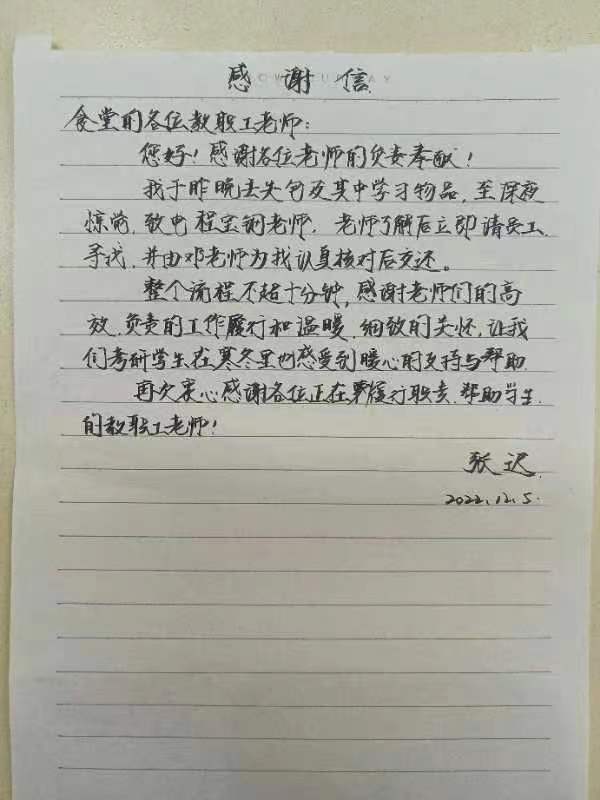 感谢信
食堂的各位教职工老师：
您好！感谢各位老师的负责奉献！
我于昨晚丢失包及其中学习物品，至深夜
惊觉，致电程宝钢老师，老师了解后立即请员工
寻找，并由邓老师为我认真核对后交还。
整个流程不超十分钟，感谢老师们的高
效、负责的工作履行和温暖、细致的关怀，让我
们考研学生在寒冬里也感受到暖心的支持与帮助
再次衷心感谢各位正在履行职责、帮助学生
的教职工老师！
张迟
2022.12.5.